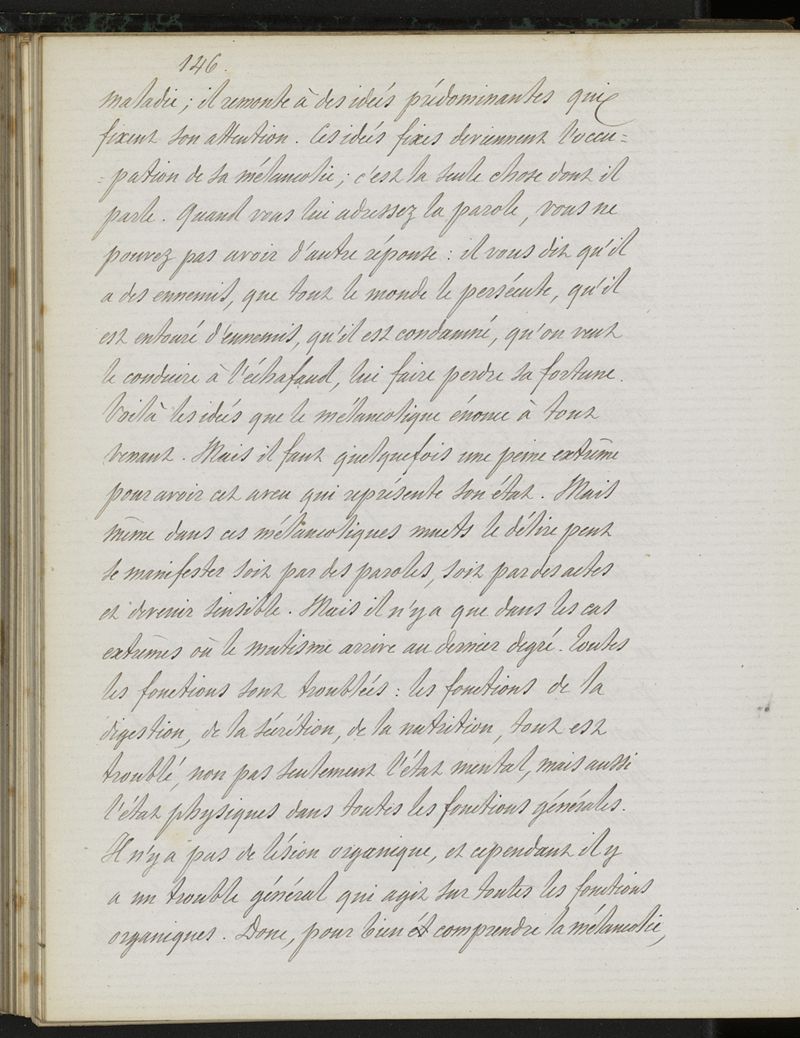 146.
maladie ; il remonte à des idées prédominantes qui
fixent son attention. Ces idées fixes deviennent l'occu=
=pation de sa mélancolie ; c'est la seule chose dont il
parle. Quand vous lui adressez la parole, vous ne
pouvez pas avoir d'autre réponse : il vous dit qu'il
a des ennemis, que tout le monde le persécute, qu'il
est entouré d'ennemis, qu'il est condamné, qu'on veut
le conduire à l'échafaud, lui faire perdre sa fortune.
Voilà les idées que le mélancolique énonce à tout
venant. Mais il faut quelquefois une peine extrême
pour avoir cet aveu qui représente son état. Mais
même dans ces mélancoliques muets le délire peut
se manifester soit par des paroles, soit par des actes
et devenir sensible. Mais il n'y a que dans les cas
extrêmes où le mutisme arrive au dernier degré. Toutes
les fonctions sont troublées : les fonctions de la
digestion, de la sécrétion, de la nutrition, tout est
troublé, non pas seulement l'état mental, mais aussi
l'état physiques dans toutes les fonctions générales.
Il n'y a pas de lésion organique, et cependant il y
a un trouble général qui agit sur toutes les fonctions
organiques. Donc, pour bien comprendre la mélancolie,